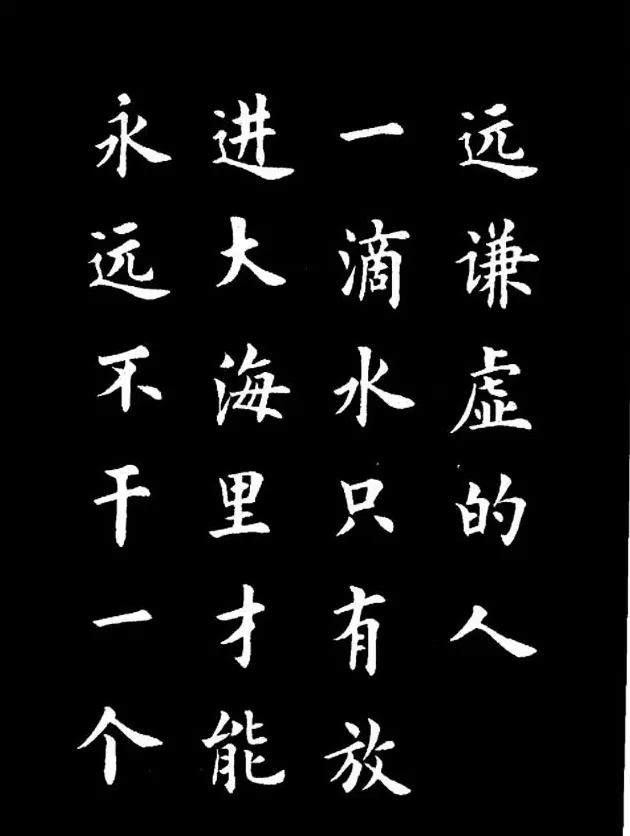 远谦虚的人
一滴水只有放
进大海里才能
永远不干一个